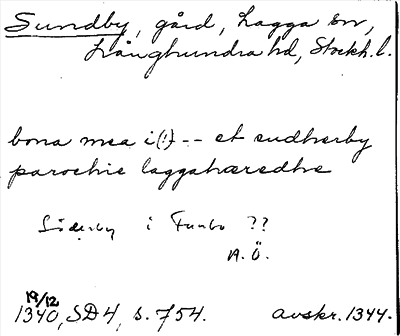 Sundby, gård, Lagga sn,
Långhundra hd, Stockh. l.
bona mea i(!) -- et sudherby
parochie laggahæredhe
Söderby i Funbo ??
A.Ö.
19/12
1340, SD 4, s. 754. avskr. 1344.